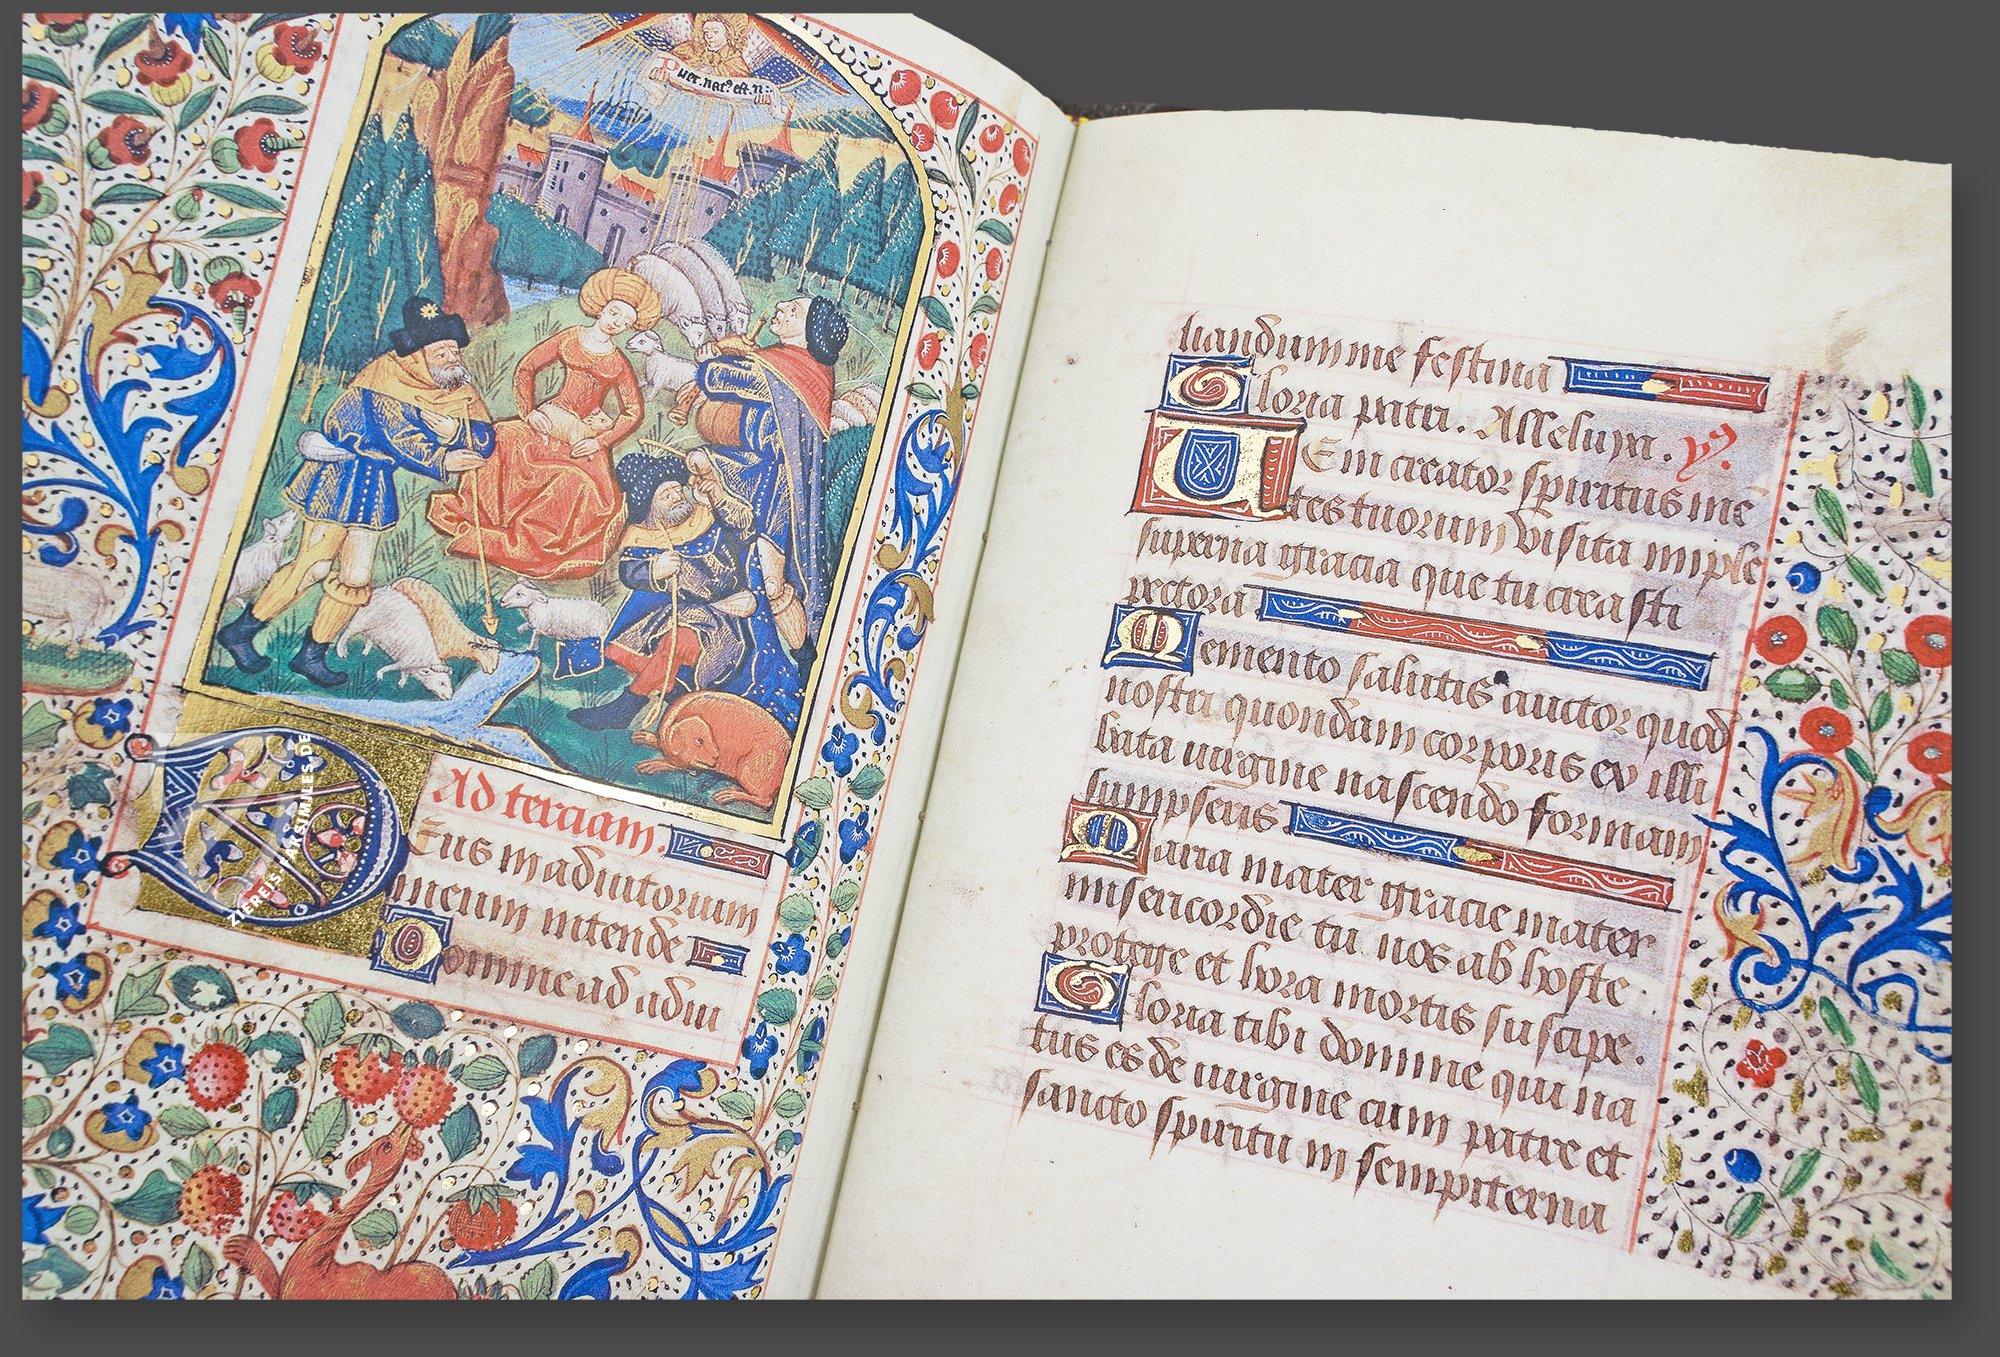 Puer.nat9.est.n:
Ad terciam.
Deus in adiutorium
meum intende
Domine ad adiu
uandum me festina
Gloria patri. Alleluya. hy.
Veni creator spiritus mē
tes tuorum visita imple
superna gracia que tu creasti
pectora
Memento salutis auctor quod
nostri quondam corporis ex illi
bata uirgine nascendo formam
sumpseris
Maria mater gracie mater
misericordie tu nos ab hoste
protege et hora mortis suscipe.
Gloria tibi domine qui na
tus es de uirgine cum patre et
sancto spiritu in sempiterna
ZIEREIS-FAKSIMILES.DE